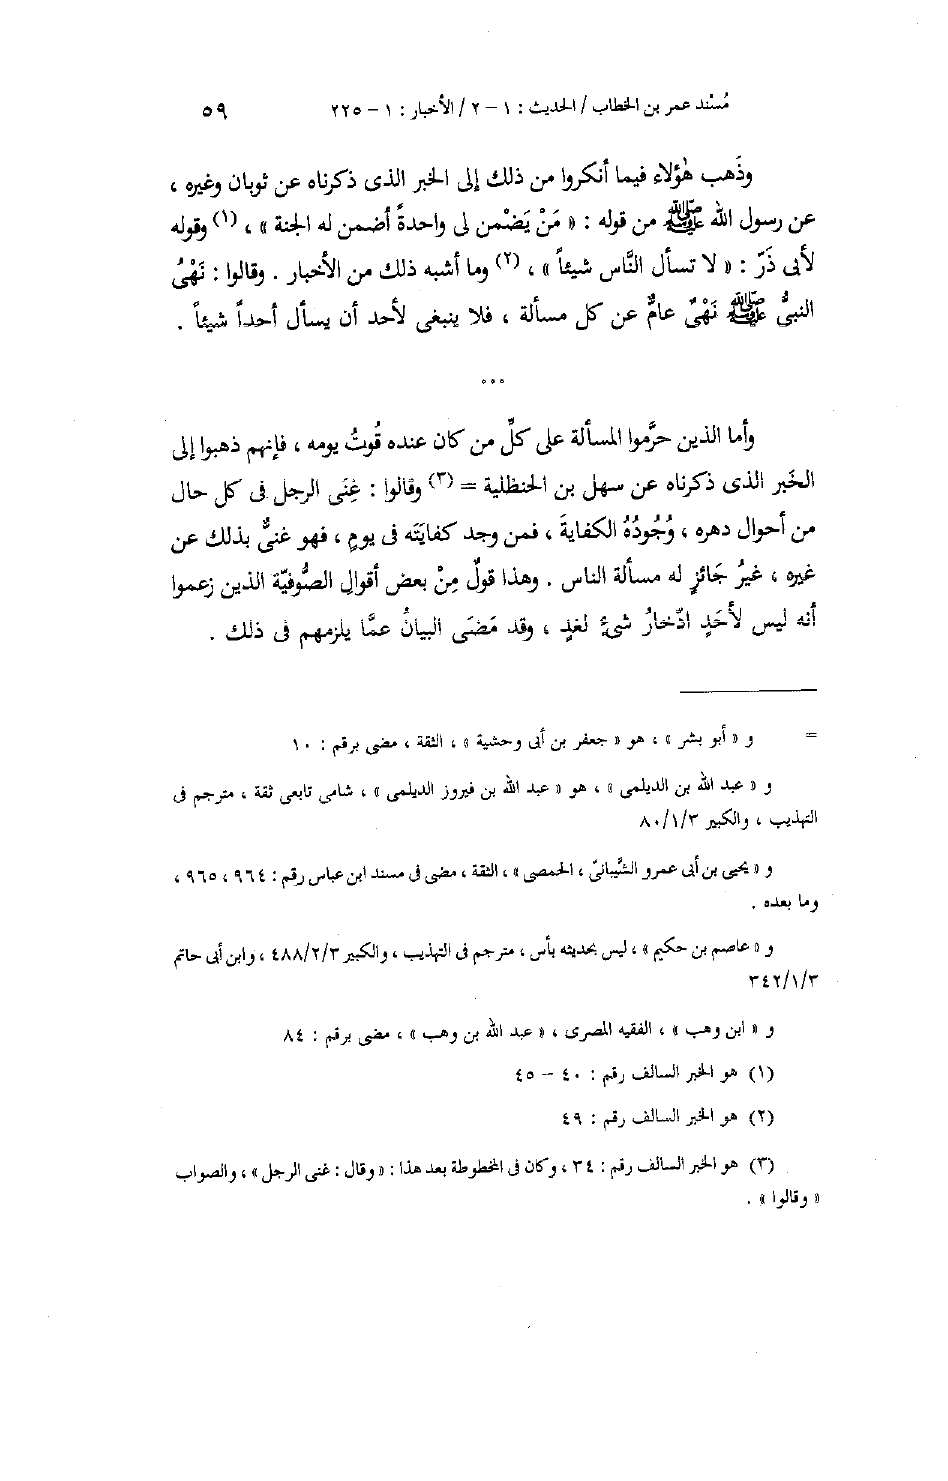 مُسْند عمر بن الخطاب / الحديث : ١ – ٢ / الأخبار : ١ – ٢٢٥ ٥٩
وذَهب هٰؤلاء فيما أنكروا من ذلك إلى الخبر الذى ذكرناه عن ثوبان وغيره ،
عن رسول الله ﷺ من قوله : « مَنْ يَضْمن لى واحدةً أضمن له الجنة » ، (١) وقوله
لأبى ذَرّ : « لا تسأل النَّاس شيئاً » ، (٢) وما أشبه ذلك من الأخبار . وقالوا : نَهْىُ
النبىُّ ﷺ نَهْىٌ عامٌّ عن كل مسألة ، فلا ينبغى لأحد أن يسأل أحداً شيئاً .
° ° °
وأما الذين حرَّموا المسألة على كلِّ من كان عنده قُوتُ يومه ، فإنهم ذهبوا إلى
الخَبر الذى ذكرناه عن سهل بن الحنظلية = (٣) وقالوا : غِنَى الرجل فى كل حال
من أحوال دهره ، وُجُودُهُ الكفايةَ ، فمن وجد كفايَتَه فى يومٍ ، فهو غنىٌّ بذلك عن
غيره ، غيرُ جَائزٍ له مسألة الناس . وهذا قولٌ مِنْ بعض أقوالِ الصُّوفيّة الذين زعموا
أنه ليس لأحَدٍ ادّخارُ شىءٍ لغدٍ ، وقد مَضَى البيانُ عمَّا يلزمهم فى ذلك .
= و « أبو بشر » ، هو « جعفر بن أبى وحشية » ، الثقة ، مضى برقم : ١٠
و « عبد الله بن الديلمى » ، هو « عبد الله بن فيروز الديلمى » ، شامى تابعى ثقة ، مترجم فى
التهذيب ، والكبير ٨٠/١/٣
و « يحيى بن أبى عمرو الشَّيبانىّ ، الحمصى » ، الثقة ، مضى فى مسند ابن عباس رقم : ٩٦٤ ، ٩٦٥ ،
وما بعده .
و « عاصم بن حكيم » ، ليس بحديثه بأس ، مترجم فى التهذيب ، والكبير ٤٨٨/٢/٣ ، وابن أبى حاتم
٣٤٢/١/٣
و « ابن وهب » ، الفقيه المصرى ، « عبد الله بن وهب » ، مضى برقم : ٨٤
(١) هو الخبر السالف رقم : ٤٠ – ٤٥
(٢) هو الخبر السالف رقم : ٤٩
(٣) هو الخبر السالف رقم : ٣٤ ، وكان فى المخطوطة بعد هذا : « وقال : غنى الرجل » ، والصواب
« وقالوا » .